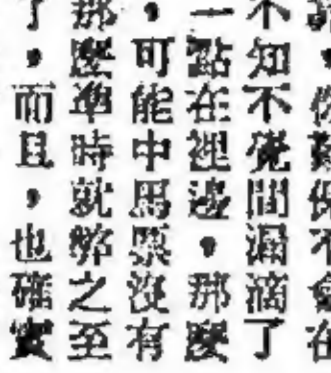 不知不覺間漏滴了
一點在裡邊，那麼
，可能中馬票沒有
那麼準時就弊之至
了，而且，也確實